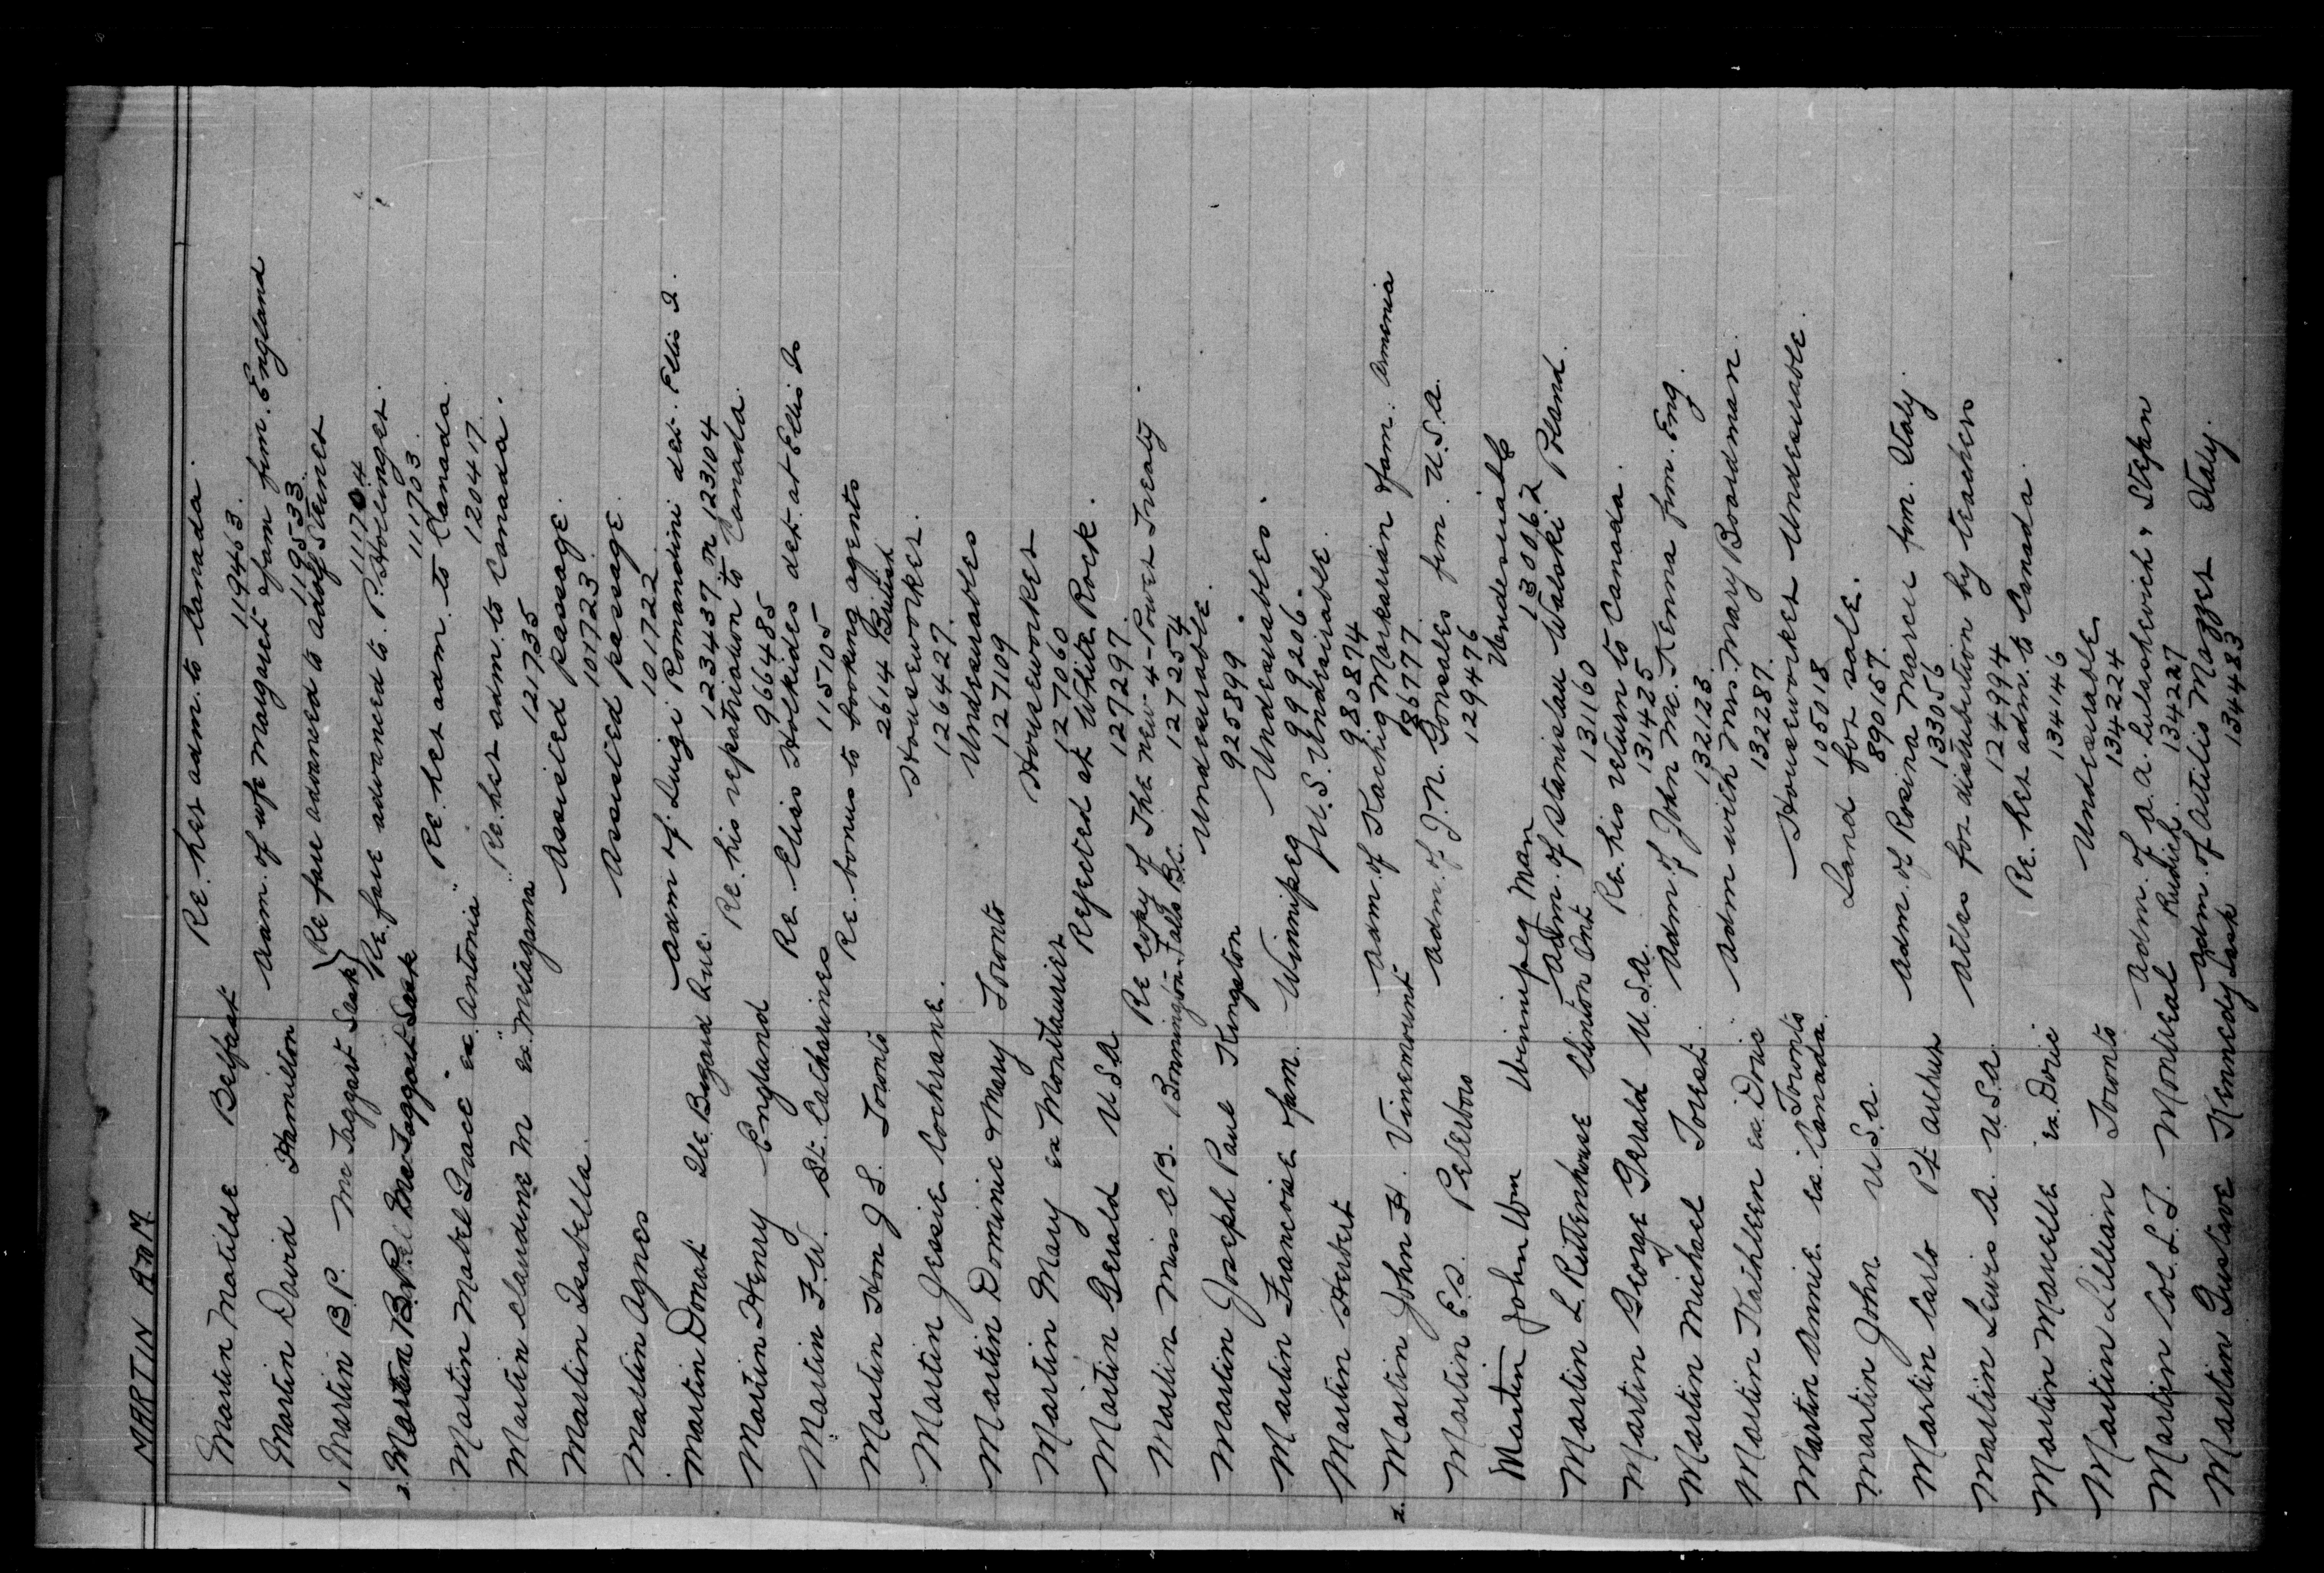 MARTIN A to M
Martin Matilde Belfast Re. her adm. to Canada.
119463.
Martin David Hamilton adm. of wfe Margaret & fam. frm. England
119533.
1. Martin B.P. McTaggart Sask } Re fare advanced to Adolf Steiner
111704
2. Martin B.P. McTaggart Sask Re. fare advanced to P. Hollinger.
111703.
Martin Mabel Grace ex. "Antonia" Re. her adm. to Canada.
120417.
Martin Claudine M ex. "Metagama" Re. her adm. to Canada.
121735
Martin Isabella Assisted passage.
101723
Martin Agnes Assisted passage
101722
Martin Donat Ile Bizard Que. Adm of Luigi Romandini det. Ellis I.
123437 in 123104
Martin Henry England Re. his repatriation to Canada.
966485
Martin F.W. St. Catharines Re Elias Holkides det. at Ellis Is
115105
Martin Hon J S. Toronto Re. bonus to booking agents
2614 British
Martin Jessie Cochrane. Houseworker.
126427.
Martin Dominic & Mary Toronto Undesirables
127109
Martin Mary ex Montlaurier Houseworker
127060
Martin Gerald USA Rejected at White Rock.
127297.
Martin Miss C B. Bonnington Falls B.C. Re copy of The new 4-Power Treaty.
127254
Martin Joseph Paul Kingston Undesirable.
925899.
Martin Francoise & fam. Winnipeg Undesirables.
999206.
Martin Herbert U.S. Undesirable.
980874
2. Martin John H. Vinemount Adm. of Kachig Markarian & fam. Armenia
86777.
Martin E.S. Peterboro Adm. of J.N. Gonsales frm. U.S.A.
129476
Martin John Wm Winnipeg Man Undesirable
130062
Martin L. Rittenhouse Clinton Ont. Adm. of Stanislau Waloski Poland.
131160
Martin George Gerald U.S.A. Re. his return to Canada.
131425
Martin Michael Forest. Adm of John McKenna frm. Eng.
132123.
Martin Kathleen ex. Doric Adm with Mrs. Mary Boardman.
132287.
Martin Annie ex. Canada. Toronto Houseworker Undesirable.
105018
Martin John U.S.A. Land for sale.
890157.
Martin Carlo Pt Arthur Adm. of Rosina Marcu frm. Italy.
133056
Martin Lewis A. U.S.A. Atlas for distribution by teachers
124994
Martin Maruelle ex. Doric Re. her adm. to Canada.
134146
Martin Lillian Toronto Undesirable
134224
Martin Col. L.T. Montreal Adm. of A.A. Lutashevich & Stephn Rudick.
134227
Martin Gustave Kennedy Sask Adm. of Attilis Mazzer Italy.
134483